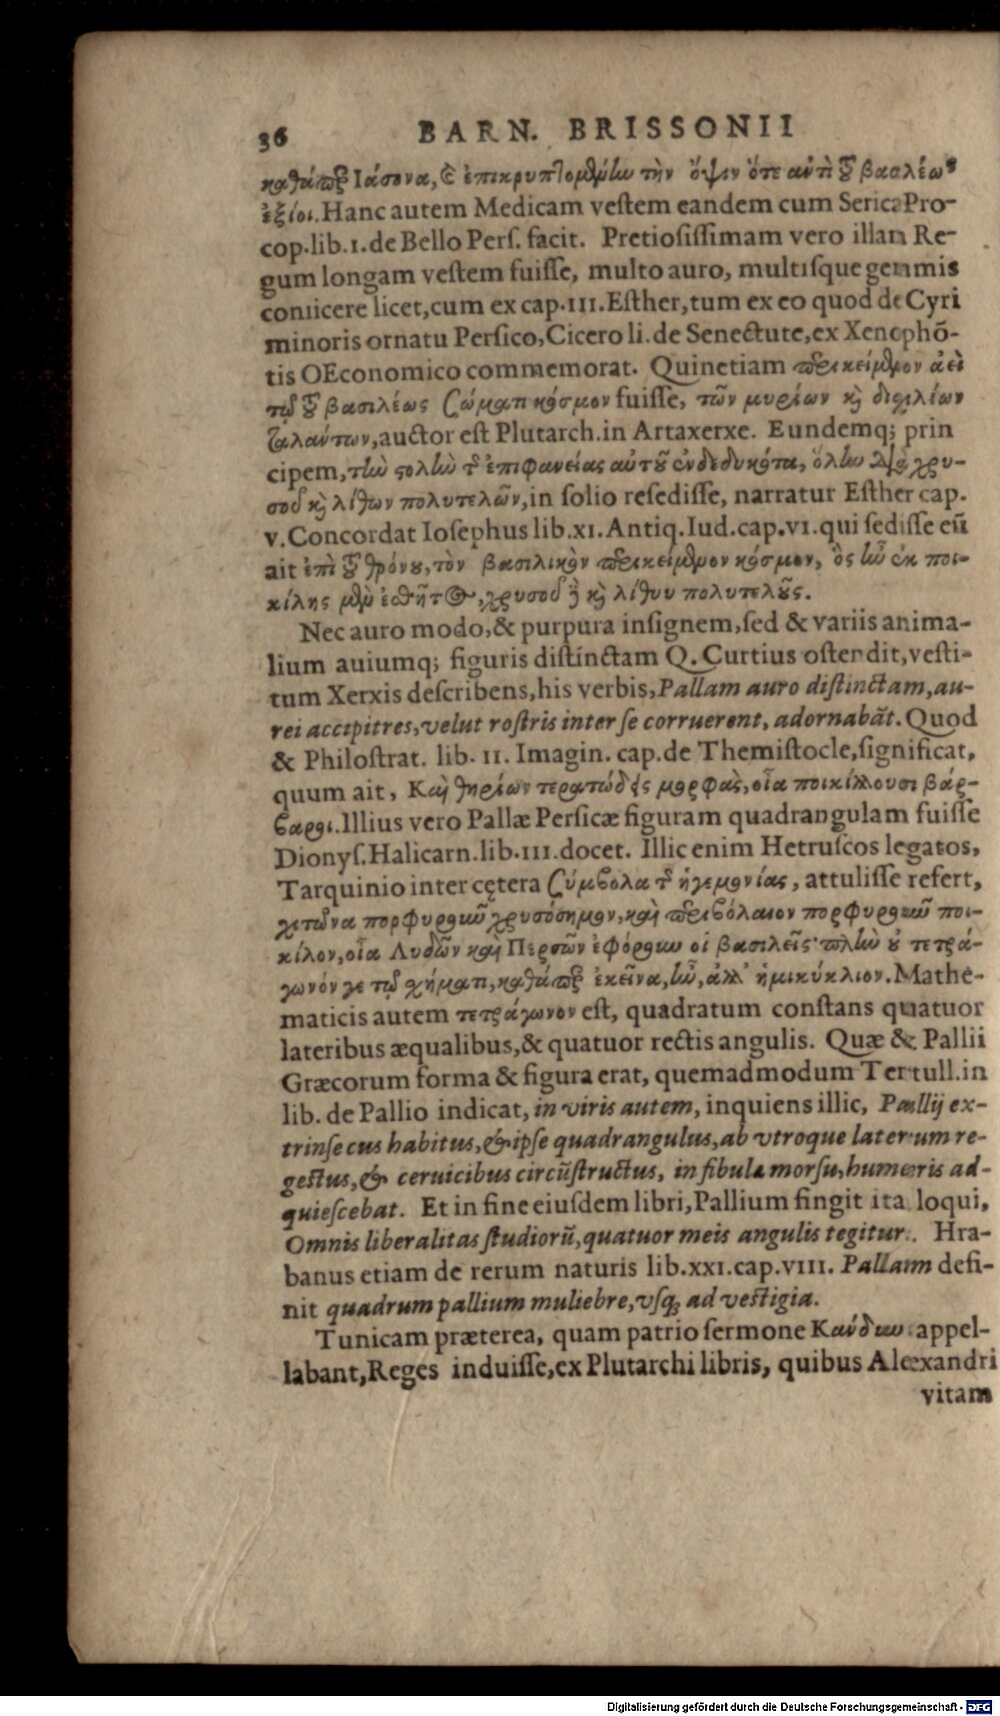 36 BARN. BRISSONII
καθάπερ Ιάσονα, & ἐπικρυπτομένίω τὴν ὄψιν ὅτε ἀντὶ τοῦ βασιλέως
ἐξίοι. Hanc autem Medicam vestem eandem cum Serica Pro-
cop.lib.1.de Bello Pers. facit. Pretiosissimam vero illam Re-
gum longam vestem fuisse, multo auro, multisque gemmis
coniicere licet, cum ex cap.III.Esther, tum ex eo quod de Cyri
minoris ornatu Persico, Cicero li. de Senectute, ex Xenophō-
tis OEconomico commemorat. Quinetiam περικείμενον ἀεὶ
τῷ τοῦ βασιλέως σώματι κόσμον fuisse, τῶν μυρίων καὶ διχιλίων
ταλάντων, auctor est Plutarch. in Artaxerxe. Eundemq; prin
cipem, τὴν στολὴν τῆς ἐπιφανείας αὐτοῦ ἐνδεδυκότα, ὅλην διὰ χρυ-
σοῦ καὶ λίθων πολυτελῶν, in solio resedisse, narratur Esther cap.
v. Concordat Iosephus lib.XI.Antiq.Iud.cap.VI.qui sedisse eū
ait ἐπὶ τοῦ θρόνου, τὸν βασιλικὸν περικείμενον κόσμον, ὃς ἦν ἐκ ποι-
κίλης μὲν ἐσθῆτος, χρυσοῦ δὲ καὶ λίθου πολυτελοῦς.
Nec auro modo, & purpura insignem, sed & variis anima-
lium auiumq; figuris distinctam Q. Curtius ostendit, vesti-
tum Xerxis describens, his verbis, Pallam auro distinctam, au-
rei accipitres, velut rostris inter se corruerent, adornabāt. Quod
& Philostrat. lib. II. Imagin. cap.de Themistocle, significat,
quum ait, Καὶ θηρίων τερατώδεις μορφὰς, οἷα ποικίλλουσι βάρ-
βαροι. Illius vero Pallæ Persicæ figuram quadrangulam fuisse
Dionys.Halicarn.lib.III.docet. Illic enim Hetruscos legatos,
Tarquinio inter cętera σύμβολα τῆς ἡγεμονίας, attulisse refert,
χιτῶνα πορφυροῦν χρυσόσημον, καὶ περιβόλαιον πορφυροῦν ποι-
κίλον, οἷα Λυδῶν καὶ Περσῶν ἐφόρουν οἱ βασιλεῖς· πλὴν οὐ τετρά-
γωνόν γε τῷ σχήματι, καθάπερ ἐκεῖνα, ἦν, ἀλλ' ἡμικύκλιον. Mathe-
maticis autem τετράγωνον est, quadratum constans quatuor
lateribus æqualibus, & quatuor rectis angulis. Quæ & Pallii
Græcorum forma & figura erat, quemadmodum Tertull.in
lib. de Pallio indicat, in viris autem, inquiens illic, Pallij ex-
trinse cus habitus, & ipse quadrangulus, ab vtroque laterum re-
gestus, & ceruicibus circūstructus, in fibulæ morsu, humeris ad-
quiescebat. Et in fine eiusdem libri, Pallium fingit ita loqui,
Omnis liberalitas studiorū, quatuor meis angulis tegitur. Hra-
banus etiam de rerum naturis lib.XXI.cap.VIII. Pallam defi-
nit quadrum pallium muliebre, vsq; ad vestigia.
Tunicam præterea, quam patrio sermone Κανδυν appel-
labant, Reges induisse, ex Plutarchi libris, quibus Alexandri
vitam
Digitalisierung gefördert durch die Deutsche Forschungsgemeinschaft - DFG